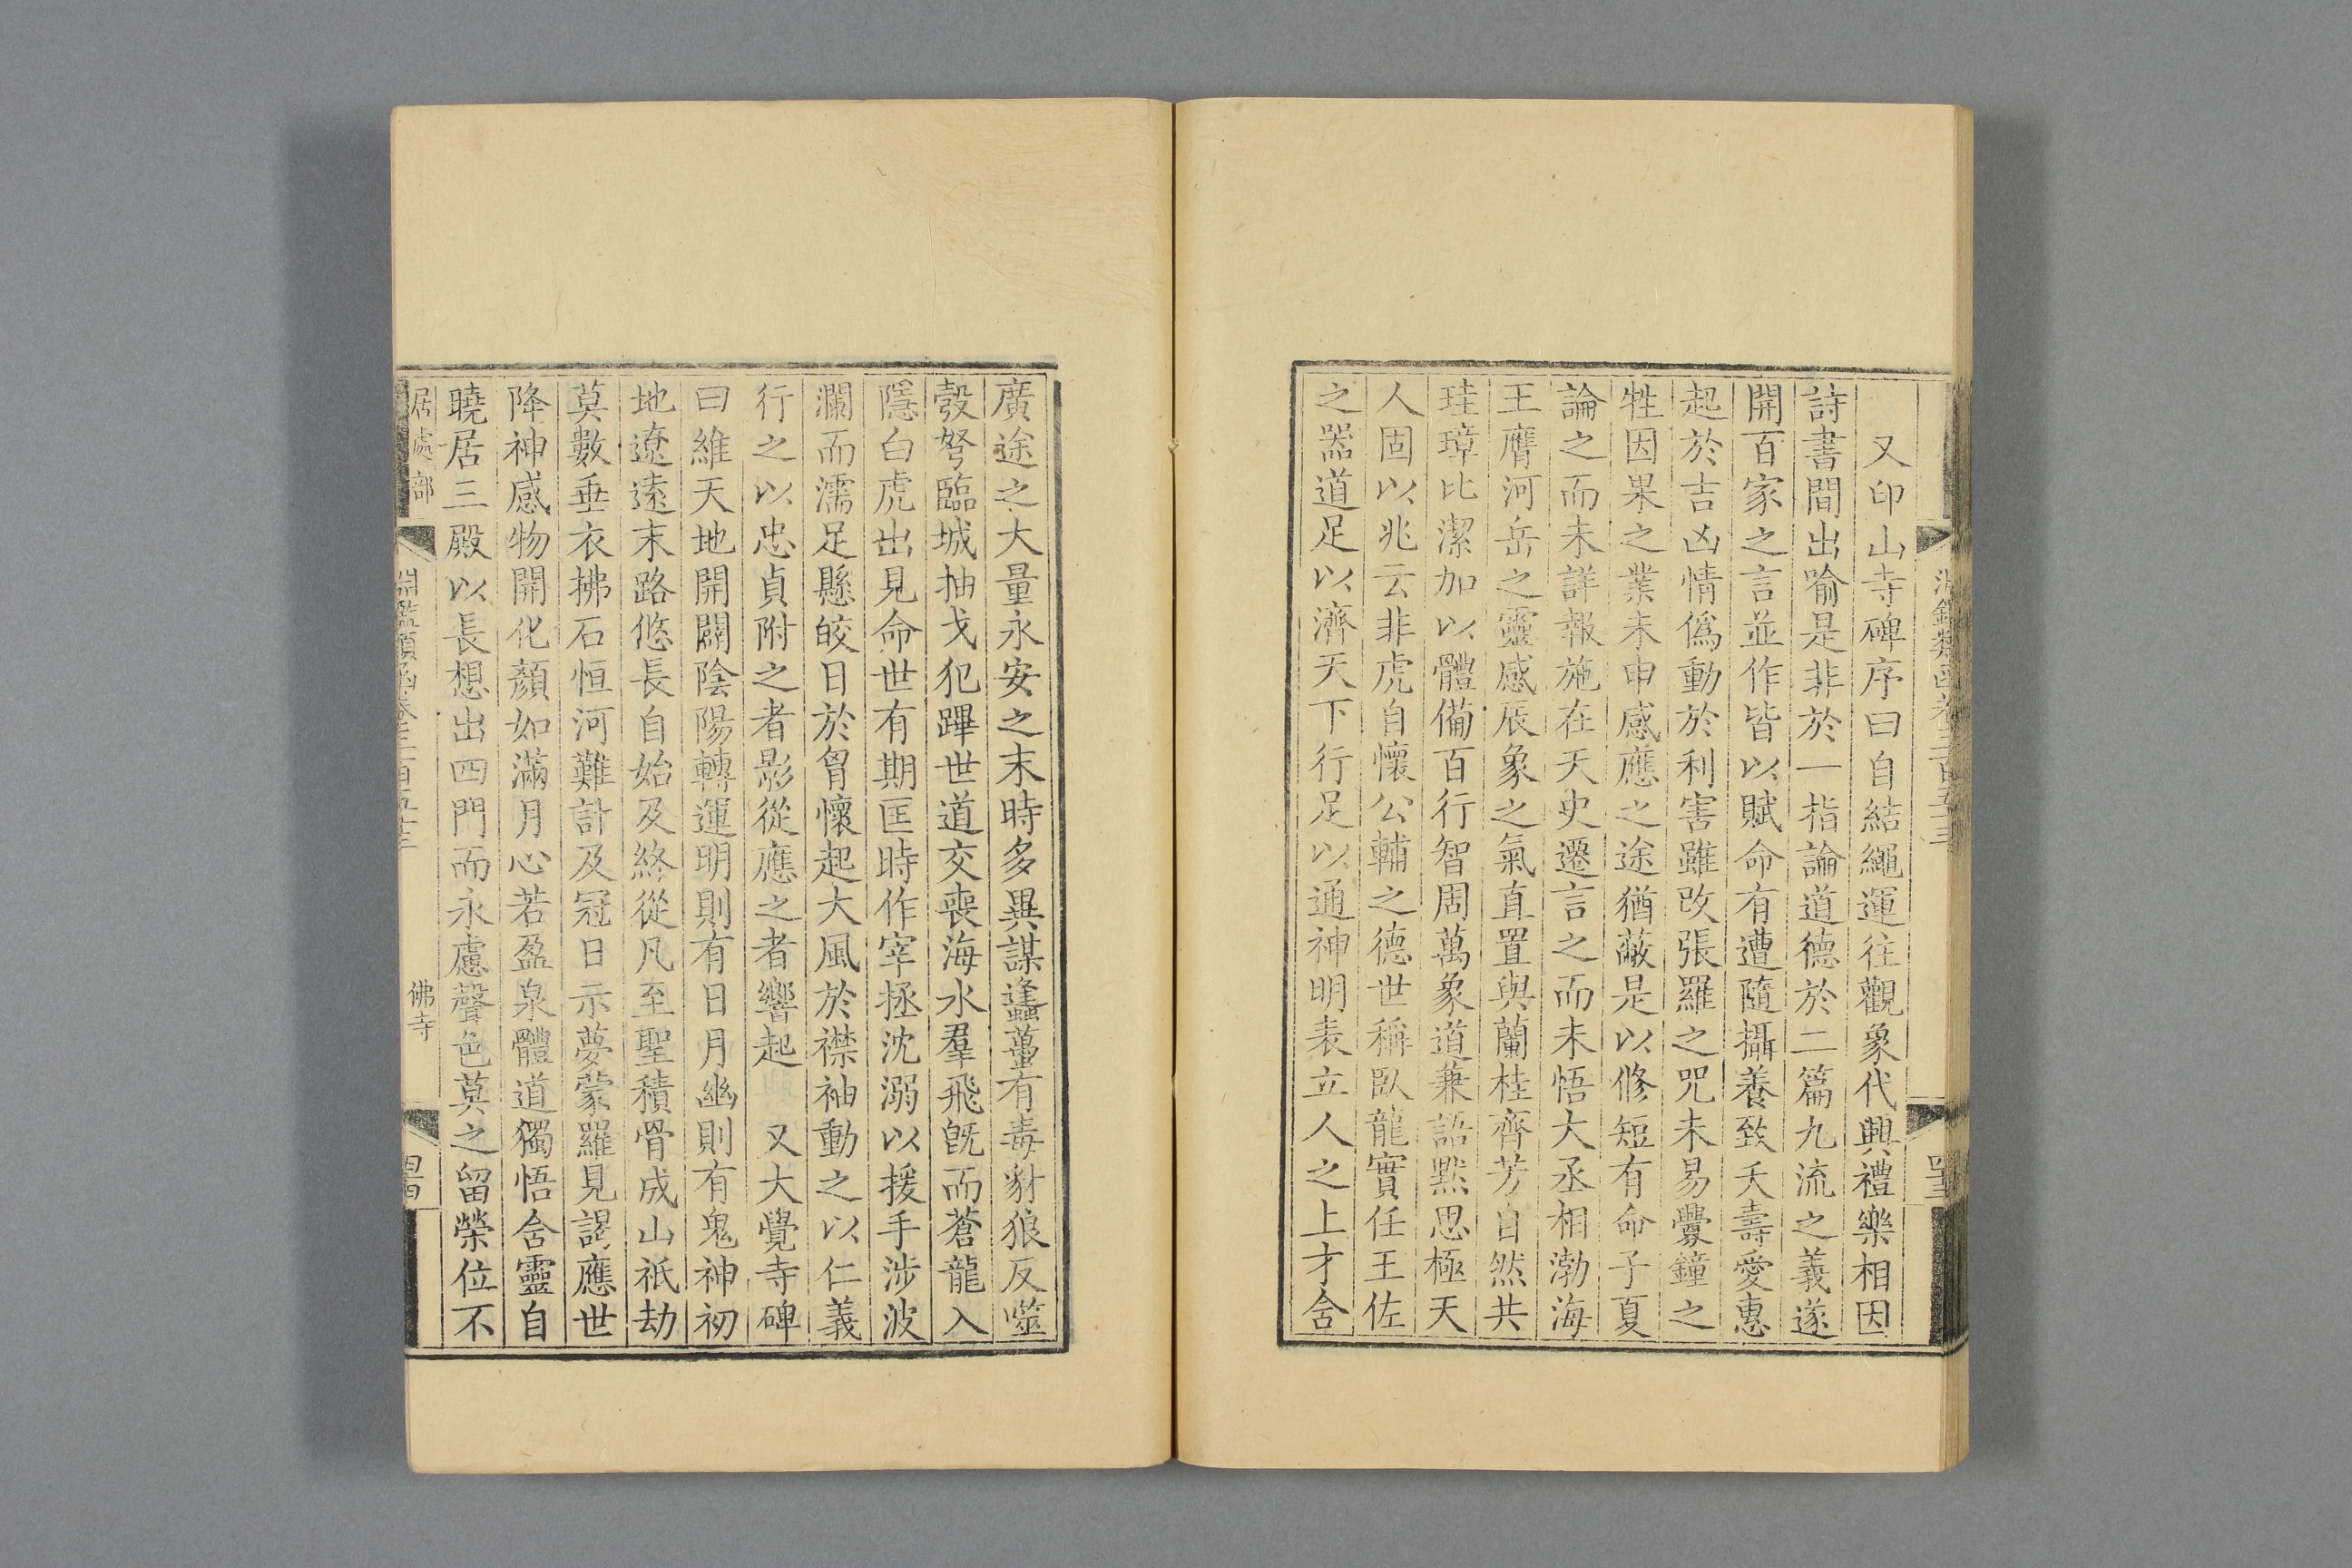 又印山寺碑序曰自結繩運往觀象代興禮樂相因
詩書間出喻是非於一指論道德於二篇九流之義遂
開百家之言並作皆以賦命有遭隨攝養致夭壽愛惠
起於吉凶情偽動於利害雖改張羅之咒未易釁鐘之
牲因果之業未申感應之途猶蔽是以修短有命子夏
論之而未詳報施在天史遷言之而未悟大丞相渤海
王膺河岳之靈感辰象之氣直置與蘭桂齊芳自然共
珪璋比潔加以體備百行智周萬象道兼語默思極天
人固以兆云非虎自懷公輔之德世稱臥龍實任王佐
之器道足以濟天下行足以通神明表立人之上才含
廣途之大量永安之末時多異謀蠭蠆有毒豺狼反噬
彀弩臨城抽戈犯蹕世道交喪海水羣飛旣而蒼龍入
隱白虎出見命世有期匡時作宰拯沈溺以援手涉波
瀾而濡足懸皎日於胷懷起大風於襟袖動之以仁義
行之以忠貞附之者影從應之者響起 又大覺寺碑
曰維天地開闢陰陽轉運明則有日月幽則有鬼神初
地遼遠末路悠長自始及終從凡至聖積骨成山祇劫
莫數垂衣拂石恒河難計及冠日示夢蒙羅見謁應世
降神感物開化顏如滿月心若盈泉體道獨悟含靈自
曉居三殿以長想出四門而永慮聲色莫之留榮位不
居處部
淵鑑類函卷三百五十三
佛寺